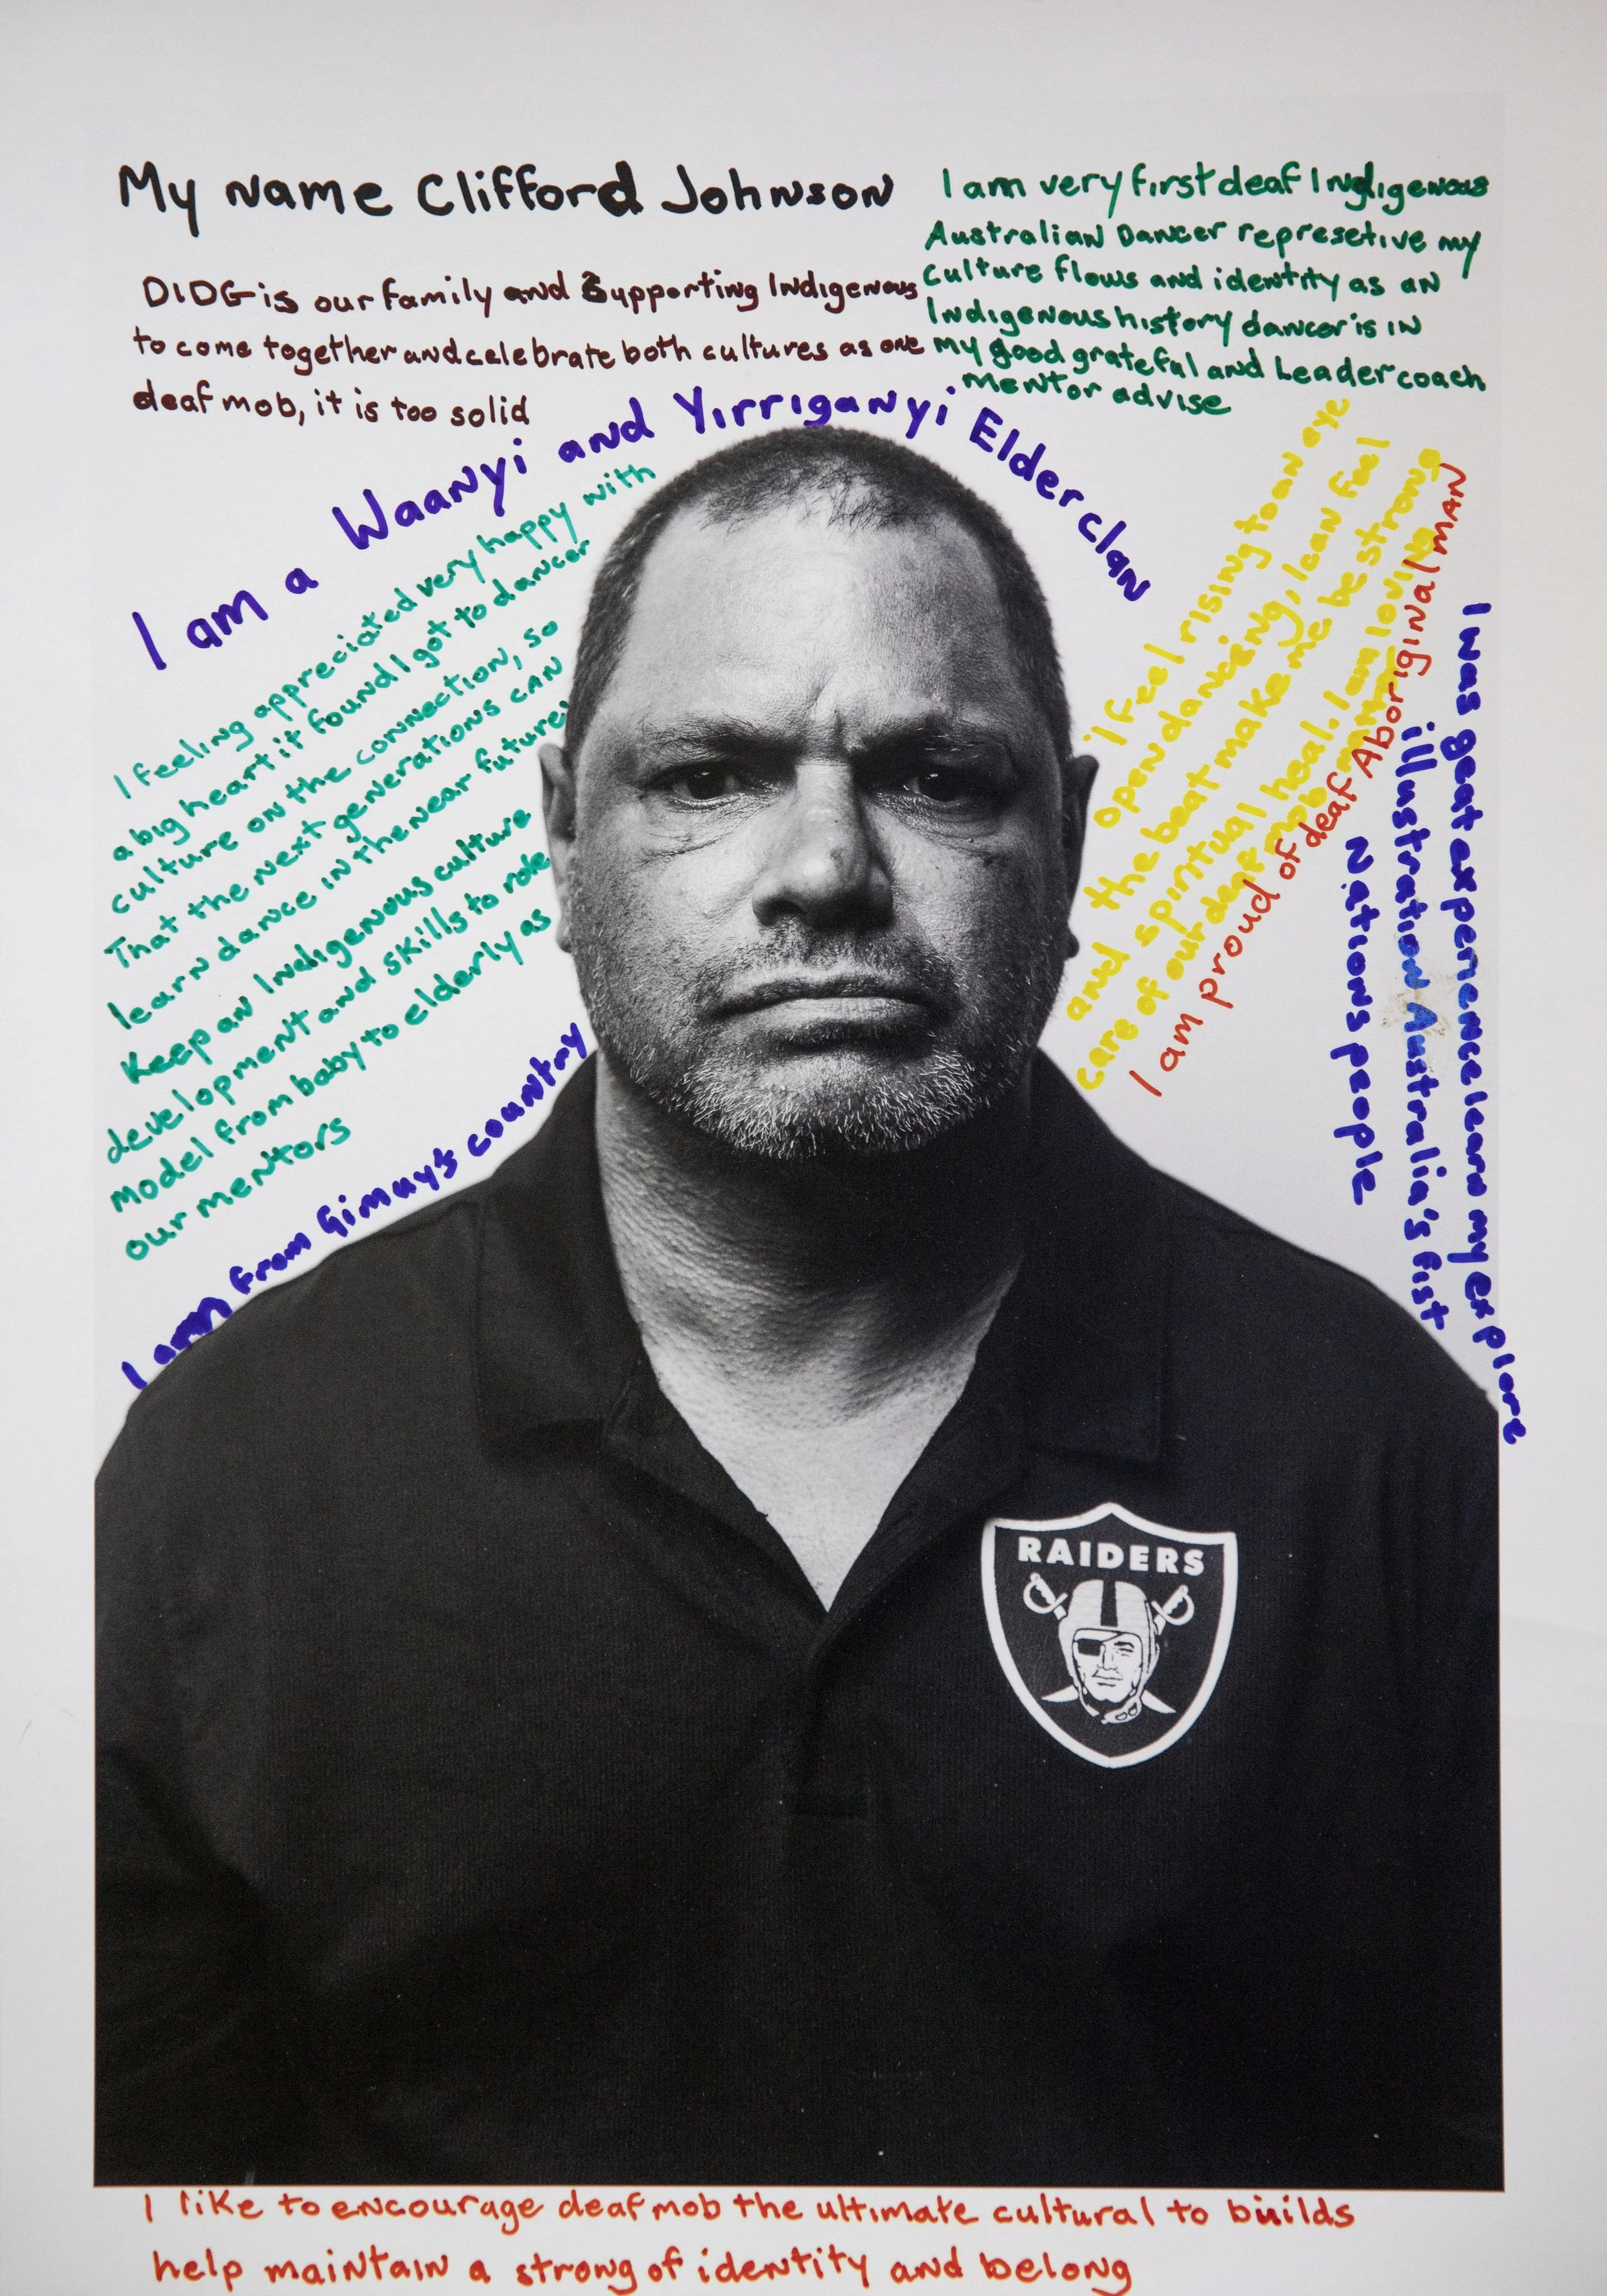 My name Clifford Johnson
DIDG is our family and Supporting Indigenous
to come together and celebrate both cultures as one
deaf mob, it is too solid
I am very first deaf Indigenous
Australian Dancer represetive my
culture flows and identity as an
Indigenous history dancer is in
my good grateful and Leader coach
mentor advise
I am a Waanyi and Yirriganyi Elder clan
I feeling appreciated very happy with
a big heart it found I got to dancer
culture on the connection, so
That the next generations can
learn dance in the near future
Keep an Indigenous culture
development and skills to role
model from baby to elderly as
our mentors
I am from Gimuy's country
I feel rising to an eye
open dancing, I can feel
and the beat make me be strong
spiritual heal. I am loving
care of our deaf mob
I am proud of deaf Aboriginal man
I was geat experience learn my explore
illustration Australia's fist
Nations people
RAIDERS
I like to encourage deaf mob the ultimate cultural to builds
help maintain a strong of identity and belong